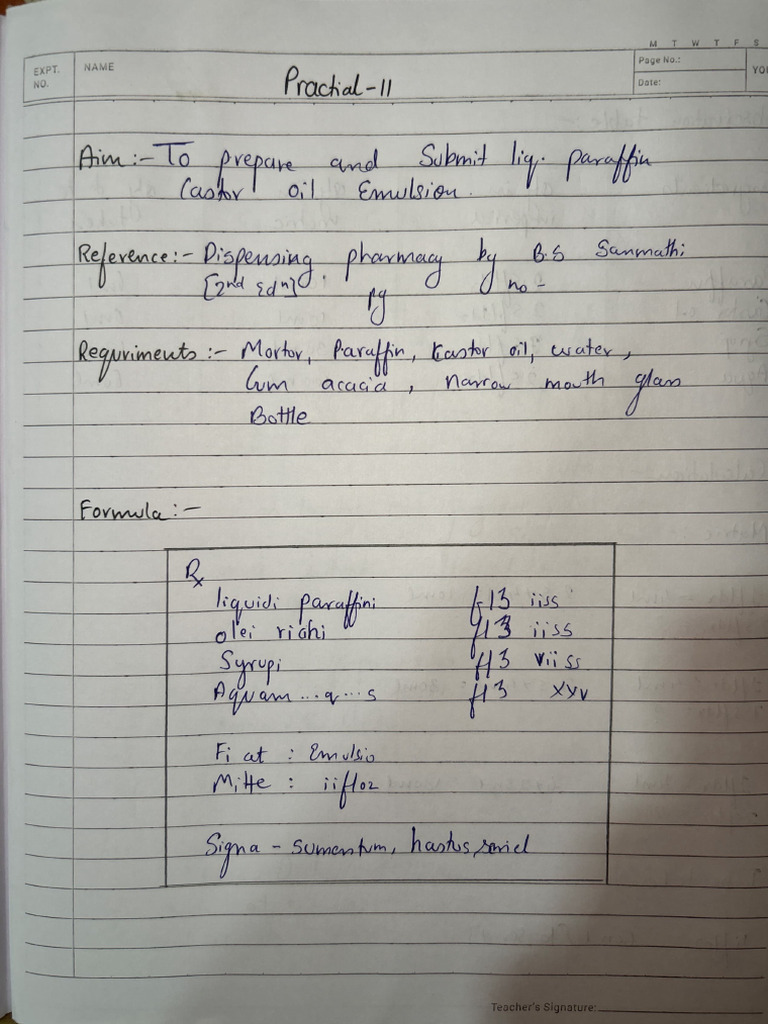 M T W T F S
EXPT. NO. NAME Page No.:
Practial-11 Date: YOU
Aim :- To prepare and Submit liq. paraffin
Castor oil Emulsion.
Reference:- Dispensing pharmacy by B.S Sanmathi
[2nd Edn]. pg no -
Requriments :- Mortor, Paraffin, Castor oil, water,
Gum acacia, narrow mouth glass
Bottle
Formula :-
Rx
liquidi paraffini fl3 iiss
olei richi fl3 iiss
Syrupi fl3 viiss
Aquam ... q ... s fl3 xxv
Fi at : Emulsio
Mitte : iifloz
Signa - sumentum, hastus,
Teacher's Signature: